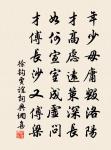 年少毋庸毀洛陽
才高慮遠策深長
如何宣室成虛問
才傅長沙又傅梁
徐鈞賈誼詞典網集